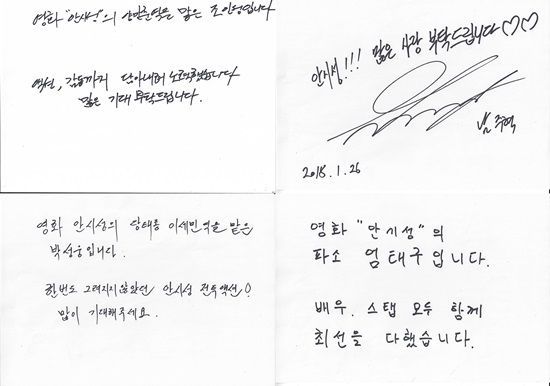 영화 "안시성"의 양만춘역을 맡은 조인성입니다
액션, 감동까지 담아내려 노력했습니다
많은 기대 부탁드립니다.
안시성!!! 많은 사랑 부탁드립니다♡♡
남주혁
2018.1.26
영화 안시성의 당태종 이세민역을 맡은
박성웅입니다.
한번도 그려지지않았던 안시성 전투액션!
많이 기대해주세요.
영화 "안시성"의
파소 엄태구입니다.
배우. 스탭 모두 함께
최선을 다했습니다.